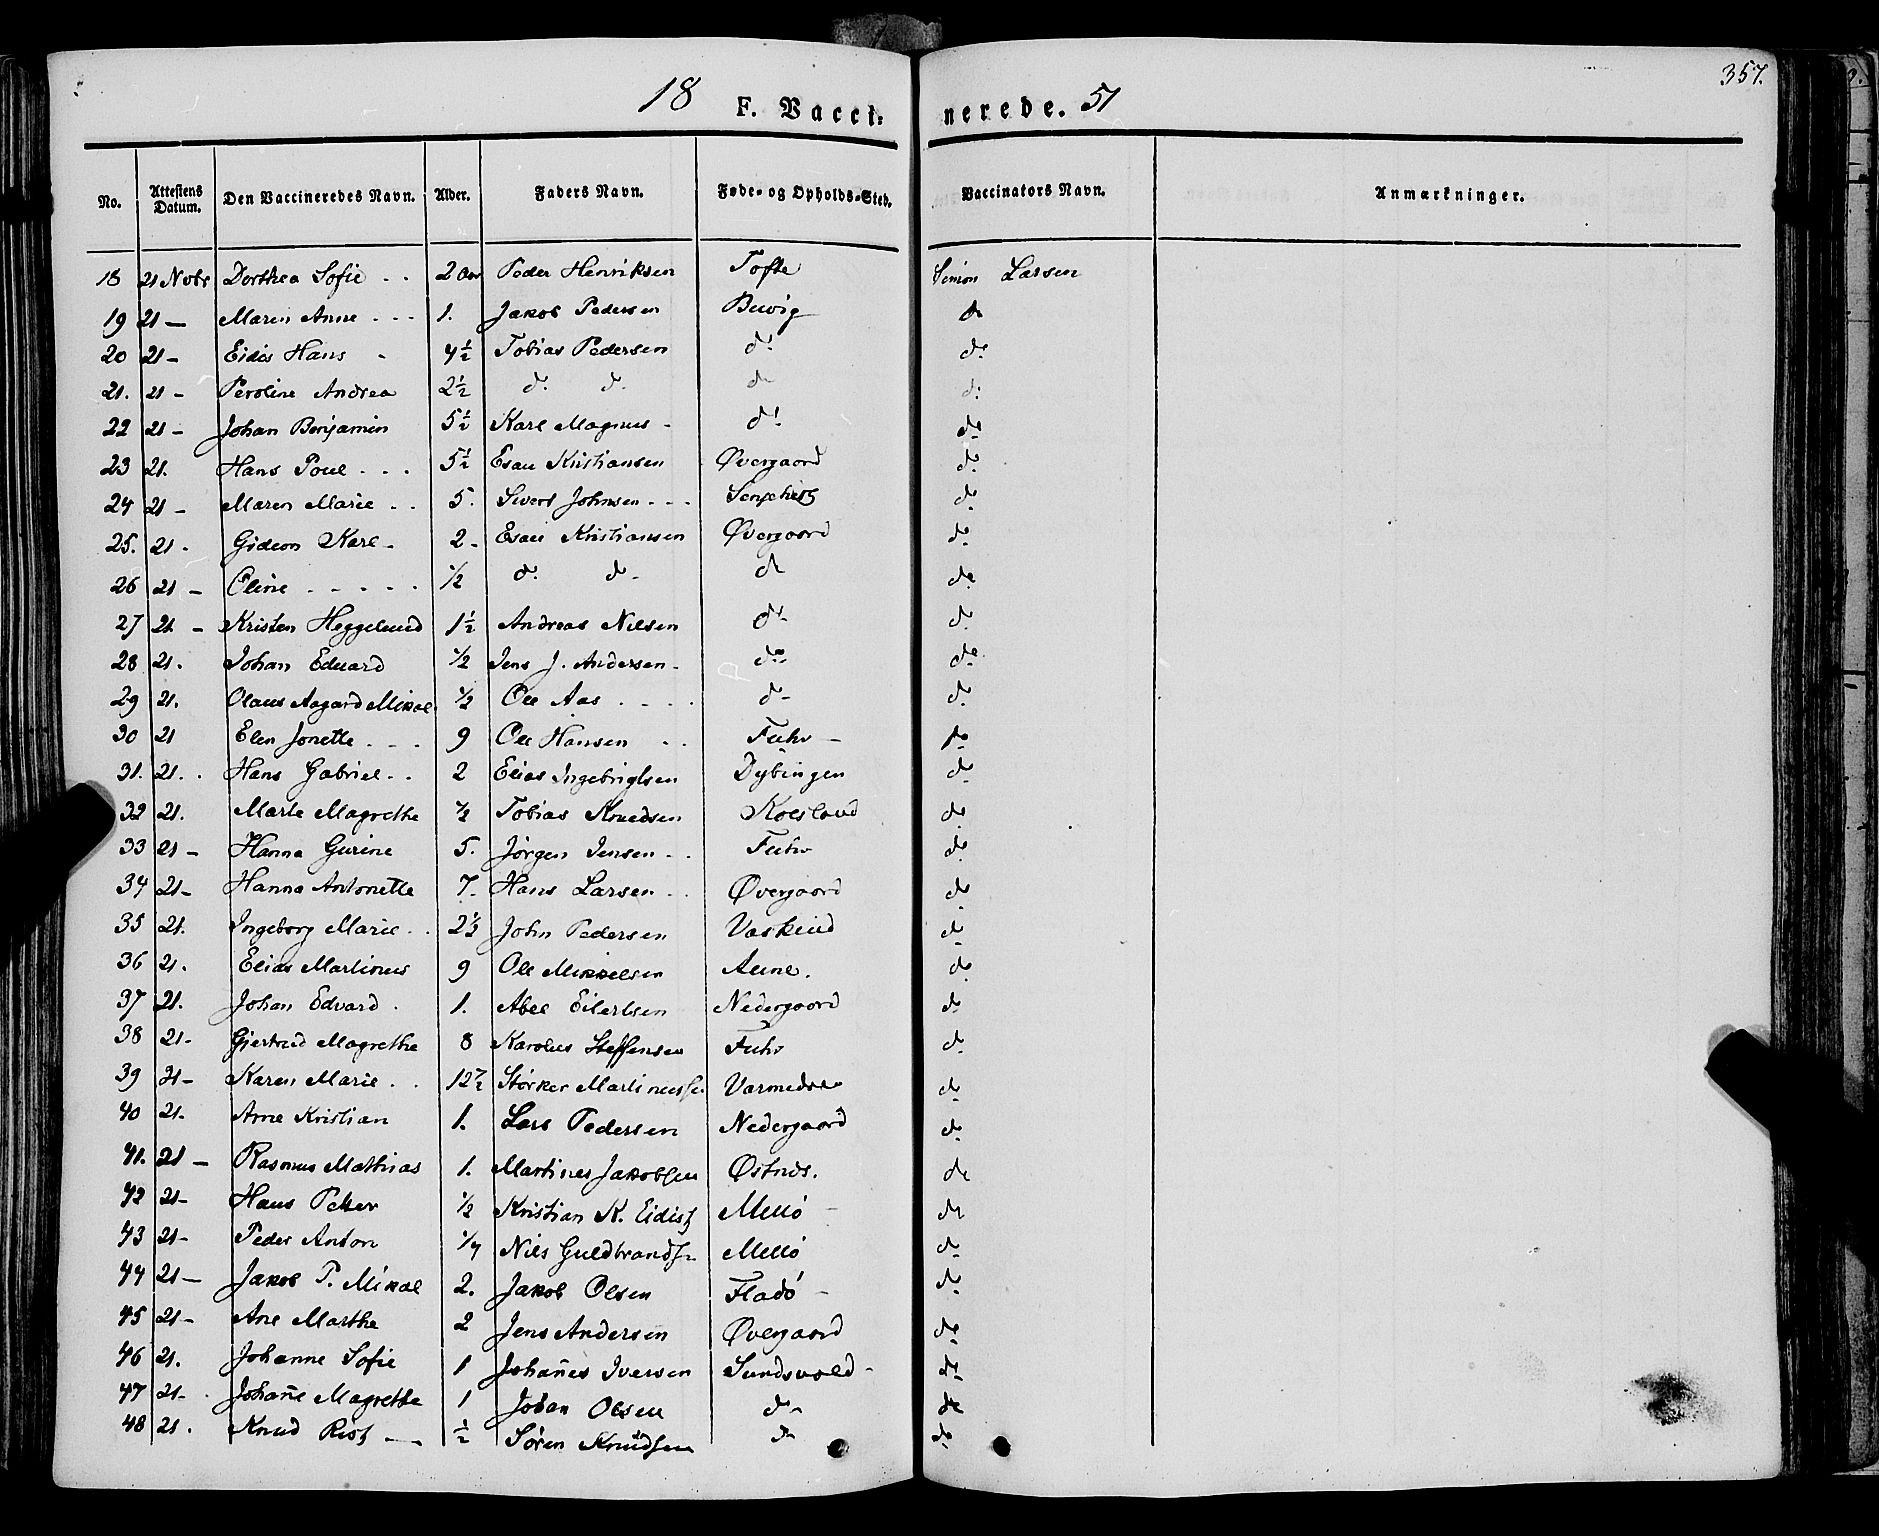 357.
18 F. Vacci- nerede. 51
No. Attestens Datum. Den Vaccineredes Navn. Alder. Faders Navn. Føde- og Opholds-Sted. Vaccinators Navn. Anmærkninger.
18 21 Nobr Dorthea Sofie - - 2 Aar Peder Henriksen Tofte Simon Larsen
19 21 — Maren Anne - - - 1. Jakob Pedersen Buvig do
20 21 - Eidis Hans - 4½ Tobias Pedersen do do
21. 21 - Peroline Andrea 2½ do do do do
22 21 - Johan Benjamin 5½ Karl Magnus - do do
23 21. Hans Poul - - - 5½ Esau Kristiansen Øvergaard do
24 21 - Maren Marie - - 5. Sivert Johnsen - - - do
25. 21 - Gideon Karl - 2 - Esau Kristiansen Øvergaard do
26 21 - Oline - - - - - ½ do do do do
27 21 - Kristen Heggelund 1½ Andreas Nilsen do do
28 21. Johan Eduard ½ Jens J. Andersen - do do
29 21. Olaus Aagard Mikal ½ Ole Aas - - - - do do
30 21 Elen Jonette - - - 9 Ole Hansen - - Fuhr - do
31. 21. Hans Gabriel - - 2 Elias Ingebrigtsen Dybingen do
32 21. Marte Magrethe ½ Tobias Knudsen do
33 21 - Hanna Gurine 5. Jørgen Jensen - - Fuhr do
34 21 - Hanna Antonette 7. Hans Larsen - - Øvergaard do
35 21. Ingeborg Marie - - 2½ John Pedersen do
36 21. Elias Martinus 9 Ole Mikkelsen Aune. do
37 21. Johan Edvard - 1. Abel Eilertsen Nedergaard do
38 21 - Gjertrud Magrethe 8 Karolus Steffensen Fuhr do
39 21 - Karen Marie - - Størker Martinussen do
40 21. Arne Kristian 1. Lars Pedersen Nedergaard do
41. 21 - Rasmus Mathias 1. Martines Jakobsen Østnes. do
42 21 - Hans Peter ½ Kristian K. Eidis Mellø - do
43 21 - Peder Anton ¼ Nils Guldbrands. Mellø do
44 21 - Jakob P. Mikal 2. Jakob Olsen Fladø - do
45 21 - Ane Marthe 2 Jens Andersen Øvergaard do
46 21. Johanne Sofie 1 Johañes Iversen Sundsvold - do
47 21 - Johañe Magrethe 1 Johan Olsen do do
48 21. Knud Rist — ½ Søren Knudsen do do